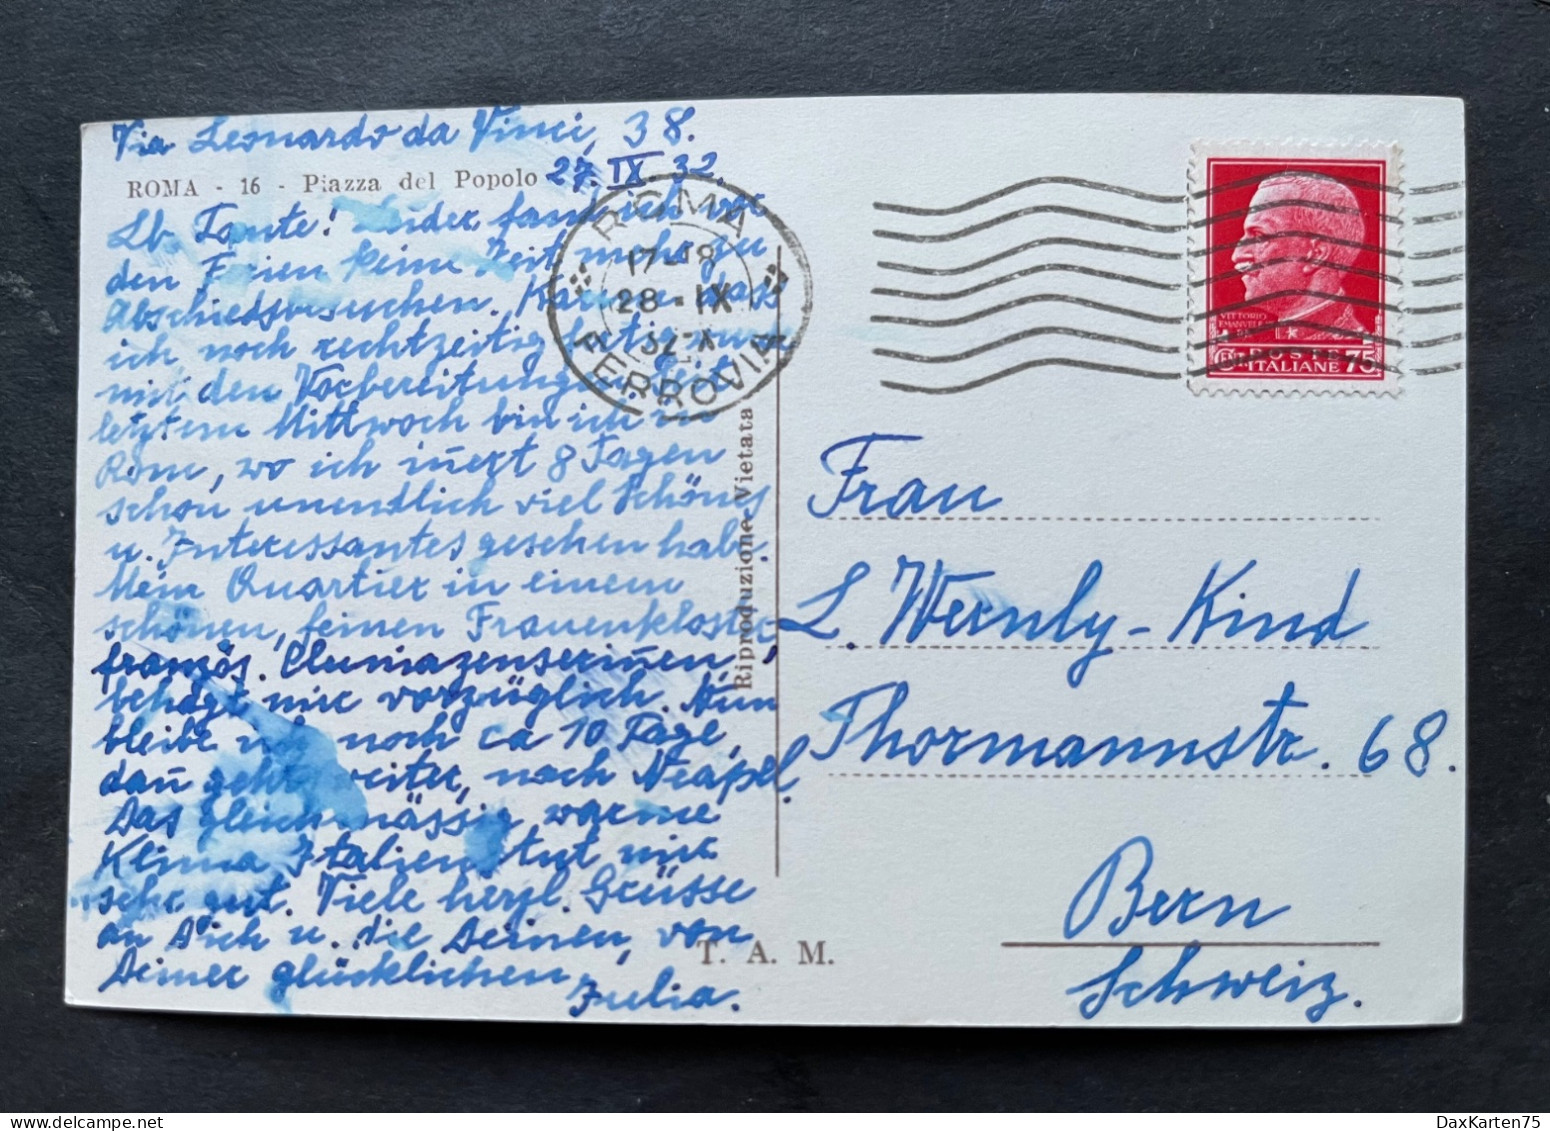 Via Leonardo da Vinci, 38.
27. IX. 32.
ROMA - 16 - Piazza del Popolo
Lb. Tante! Leider fand ich vor
den Ferien keine Zeit mehr zu
Abschiedsbesuchen. Kaum dass
ich noch rechtzeitig fertig wurde
mit den Vorbereitungen. Seit
letztem Mittwoch bin ich in
Rom, wo ich in̄ert 8 Tagen
schon unendlich viel Schönes
u. Interessantes gesehen habe.
Mein Quartier in einem
schönen, feinen Frauenkloster
französ. Cluniazenserin̄en,
behagt mir vorzüglich. Nun
bleibe ich noch ca 10 Tage,
dan̄ geht weiter, nach Neapel.
Das gleichmässig warme
Klima Italiens tut mir
sehr gut. Viele herzl. Grüsse
an Dich u. die Deinen, von
Deiner glücklichen
Julia.
ROMA
17-18
28 - IX
32 X
FERROVIA
Riproduzione Vietata
T. A. M.
VITTORIO
EMANUELE
POSTE
ITALIANE 75
Frau
L. Wernly-Kind
Thormannstr. 68.
Bern
Schweiz.
DaxKarten75